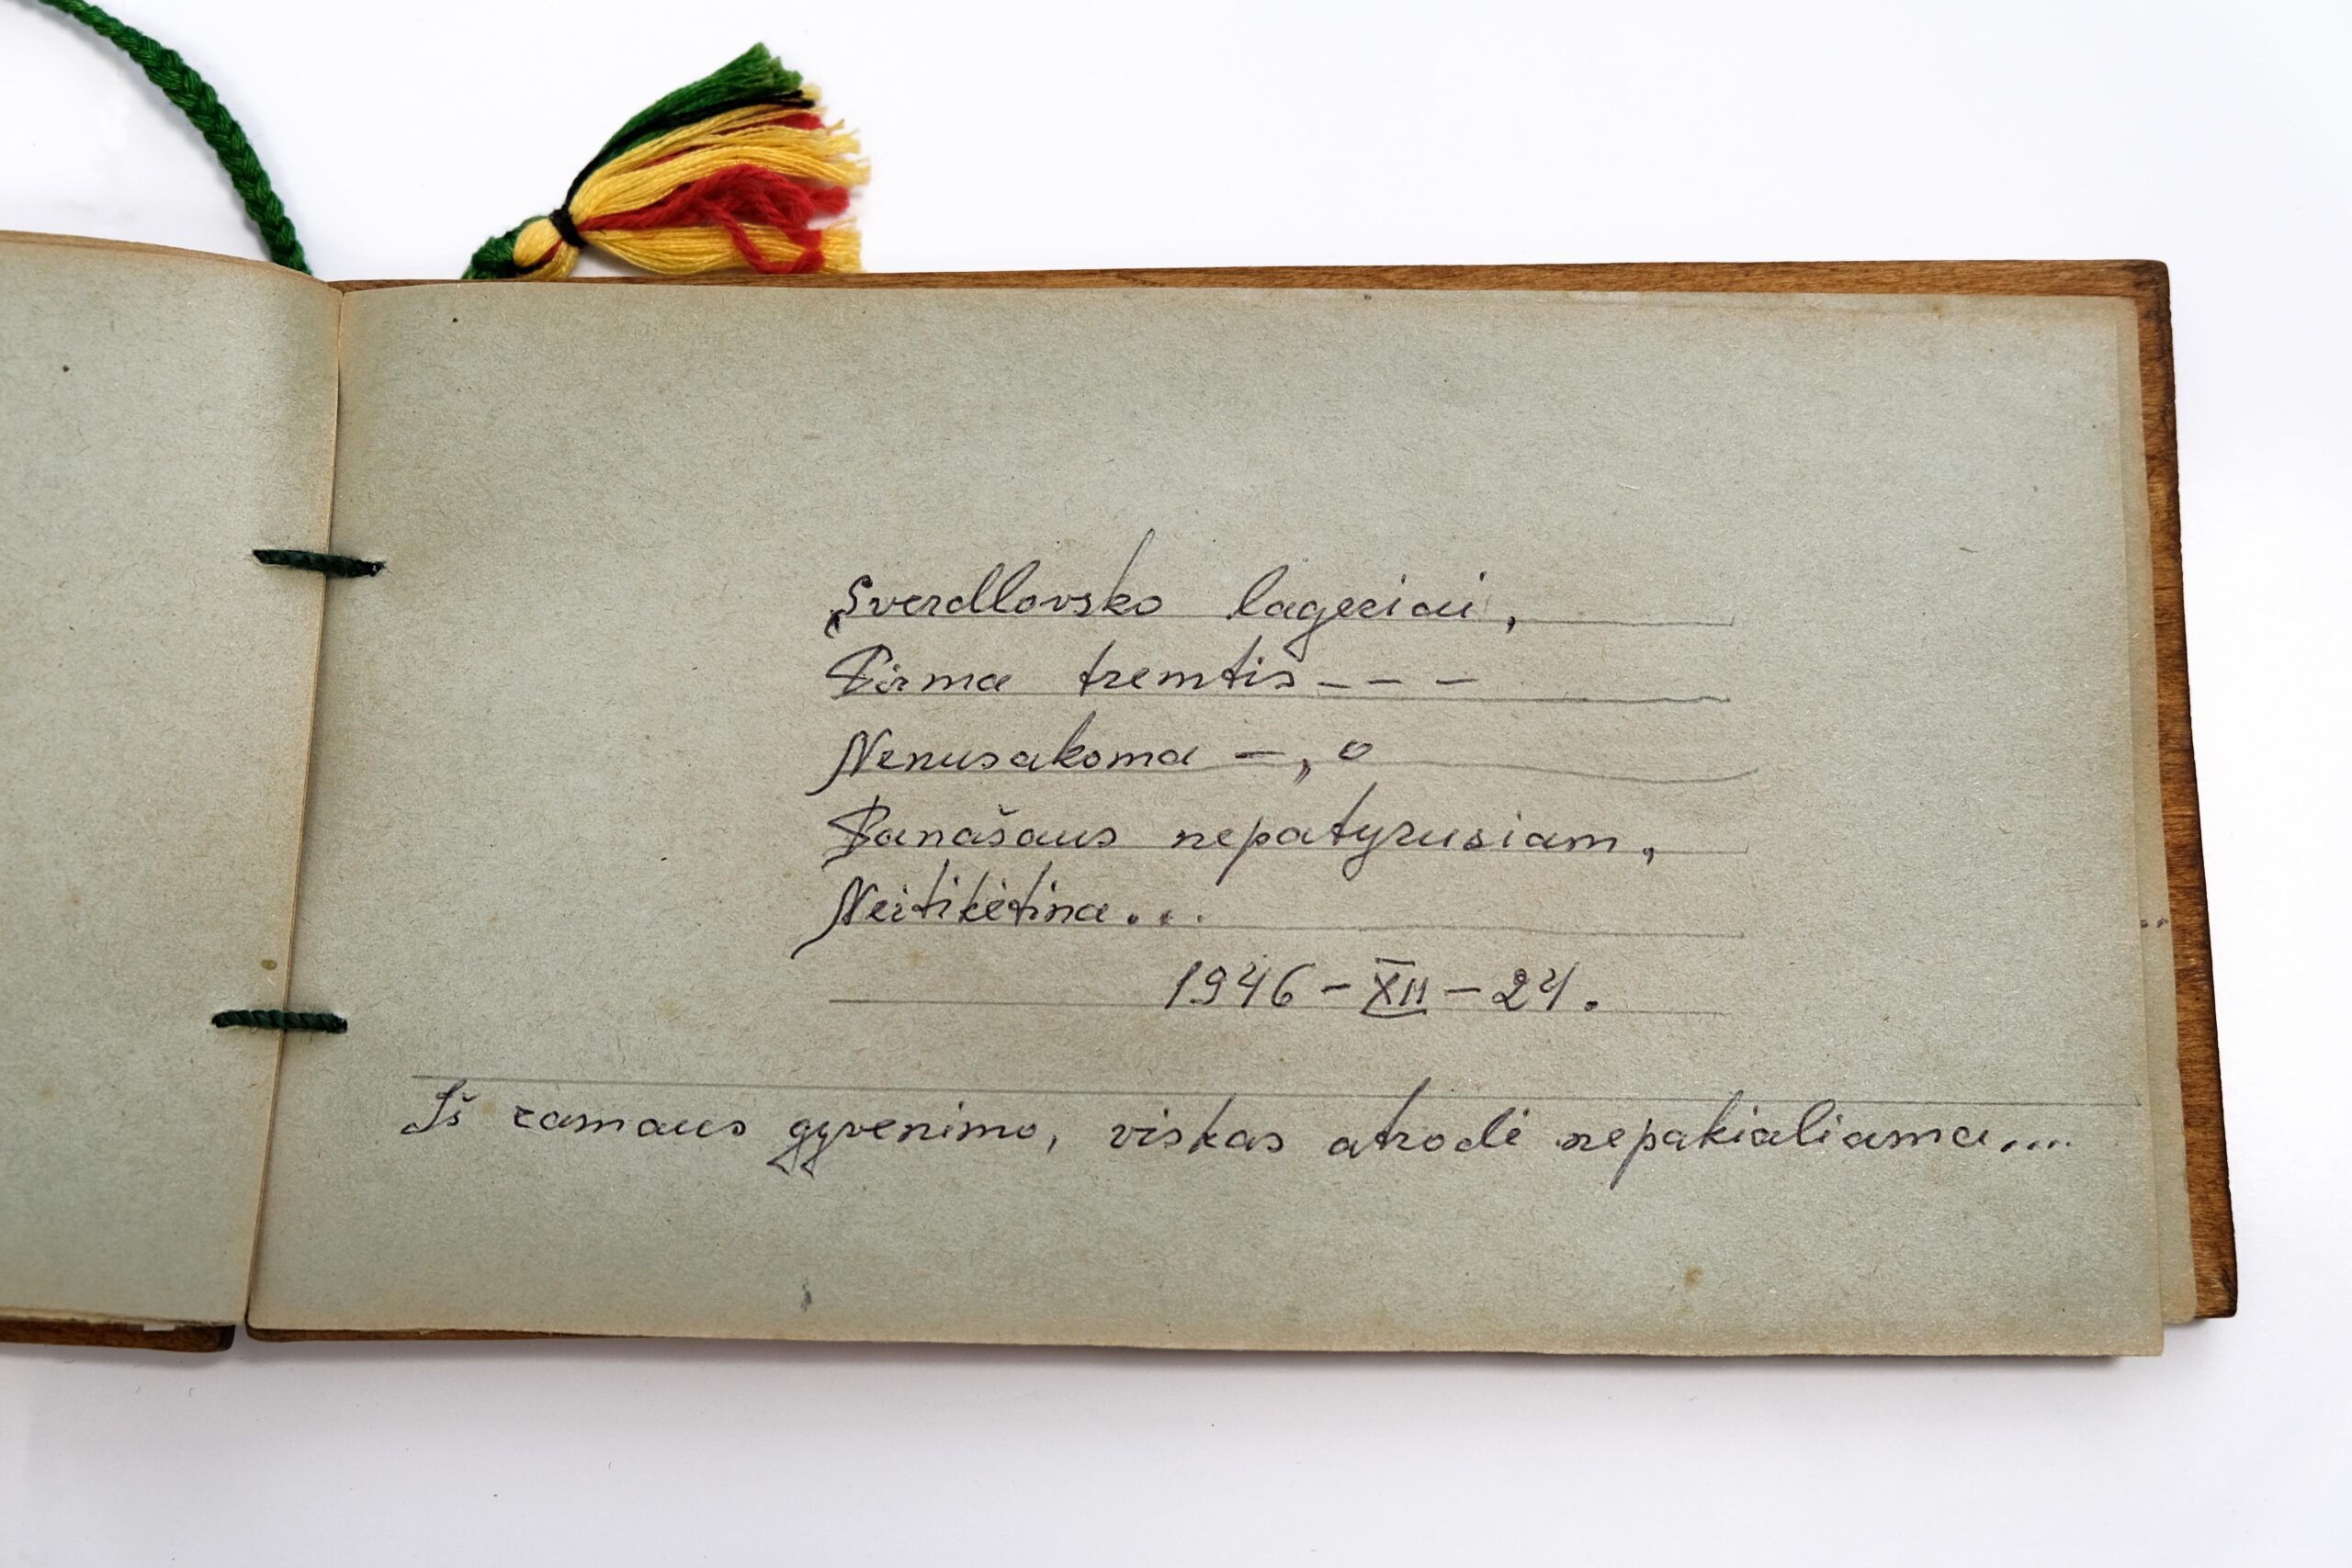 Sverdlovsko lageriai,
Pirma tremtis - - -
Nenusakoma -, o
Panašaus nepatyrusiam,
Neitikėtina...
1946 - XII - 24.
Iš ramaus gyvenimo, viskas atrodė nepakialiama....